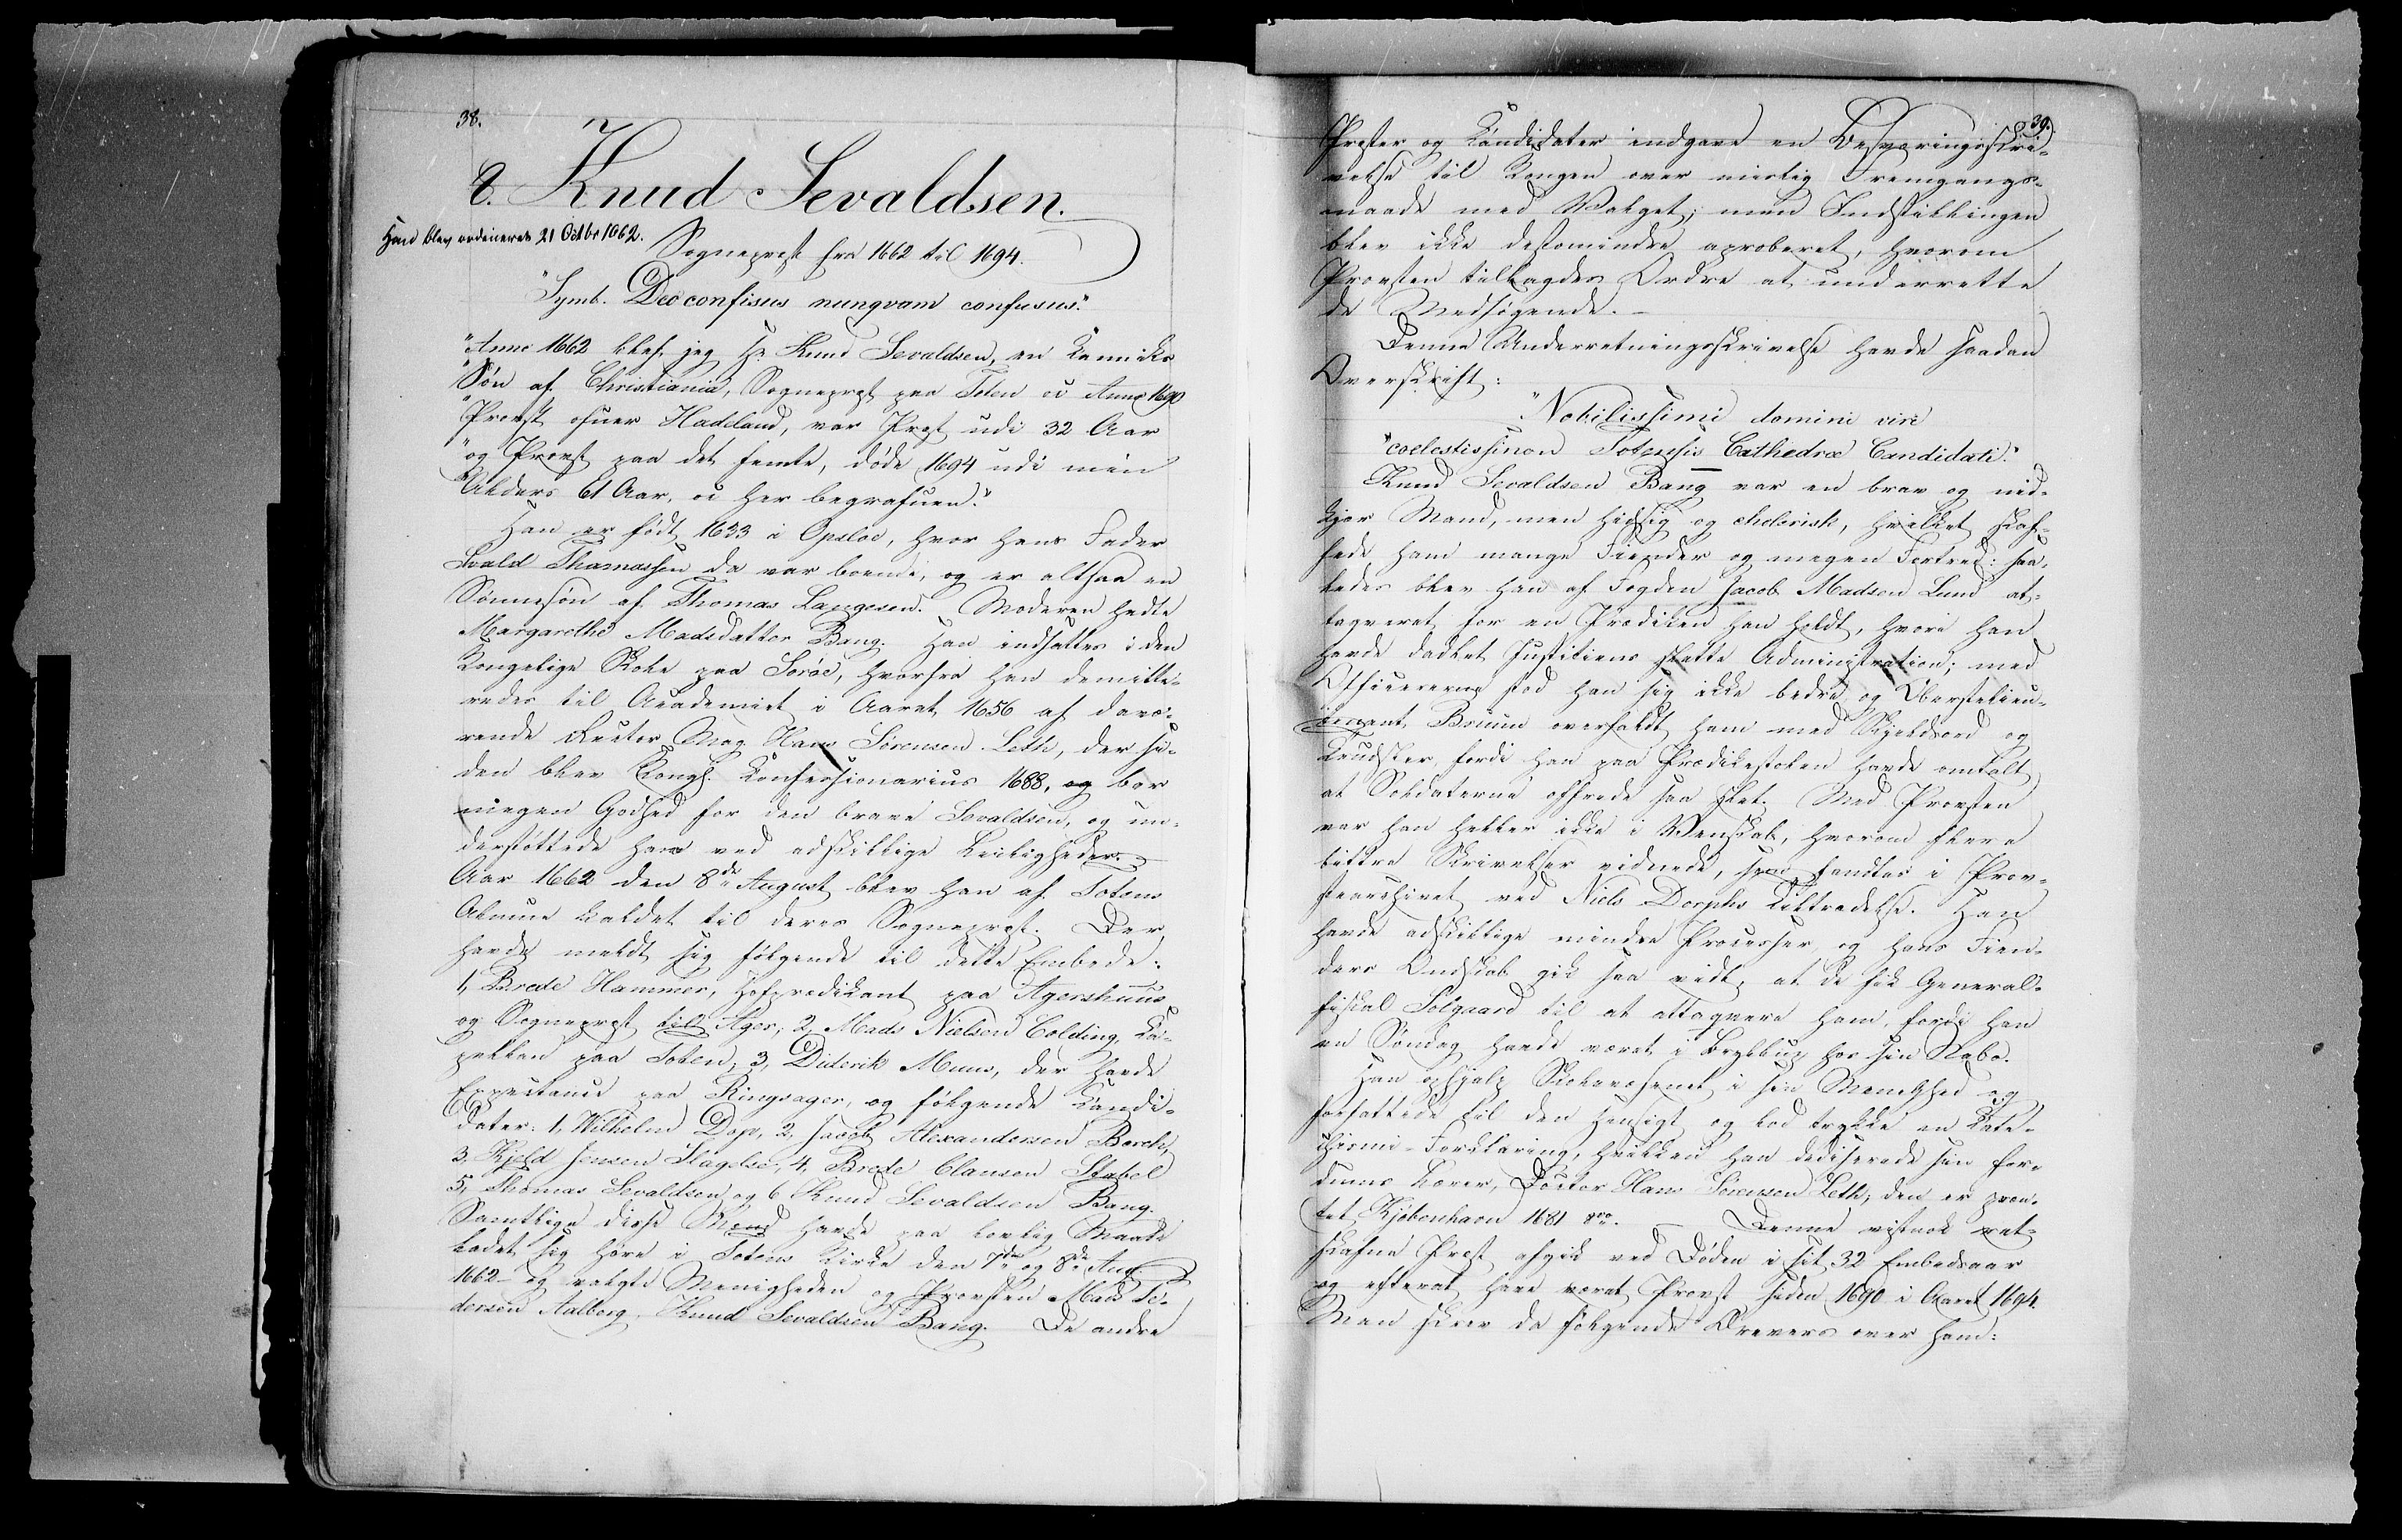 38.
8. Knud Sevaldsen.
Han blev ordineret 21 Octbr 1662.
Sogneprest fra 1662 til 1694.
"Symb. Deo confisus nunqvam confusus."
"Anno 1662 blef jeg Hr. Knud Sevaldsen, en Canniks
"Søn af Christiania, Sogneprest paa Toten oc Anno 1690
"Provst ofuer Hadeland, var Prest udi 32 Aar
"og Provst paa det femte, døde 1694 udi min
"Alders 61 Aar, oc her begrafuen."
Han er født 1633 i Opsloe, hvor hans Fader
Sevald Thomassen da var boende, og er altsaa en
Sønnesøn af Thomas Langesen. Moderen hedte
Margarethe Madsdatter Bang. Han indsattes i den
Kongelige Skole paa Sorøe, hvorfra han demitte-
redes til Academiet i Aaret 1656 af davæ-
rende Rector Mag. Hans Sørensen Leth, der si-
den blev Kongl. Confessionarius 1688, og bar
megen Godhed for den brave Sevaldsen, og un-
derstøttede ham ved adskillige Leiligheder.
Aar 1662 den 8de August blev han af Totens
Almue kaldet til deres Sogneprest. Der
havde meldt sig følgende til dette Embede:
1, Brede Hammer, Hofpredikant paa Agershuus
og Sogneprest til Ager, 2, Mads Nielsen Colding, Ca-
pellan paa Toten, 3, Diderik Muus, der havde
Expectance paa Ringsager, og følgende Candi-
dater: 1, Wilhelm Dop, 2, Jacob Alexandersen Borch,
3, Kjeld Jensen Slagelse, 4, Brede Clausen Stabel
5, Thomas Sevaldsen og 6 Knud Sevaldsen Bang.
Samtlige disse Mænd havde paa lovlig Maade
ladet sig høre i Totens Kirke den 7de og 8de Aug.
1662 og valgte Menigheden og Provsten Mads Pe-
dersen Aalborg, Knud Sevaldsen Bang. De andre
39.
Prester og Candidater indgave en Besværingsskri-
velse til Kongen over urigtig Fremgangs-
maade med Valget; men Indstillingen
blev ikke destomindre aproberet, hvorom
Provsten tillagdes Ordre at underrette
de Medsøgende. –
Denne Underretningsskrivelse havde saadan
Overskrift:
"Nobilissimi domini viri
"coelestissimon Totensis Cathedræ Candidati."
Knud Sevaldsen Bang var en brav og nid-
kjær Mand, men hidsig og cholerisk, hvilket skaf-
fede ham mange Fiender og megen Fortred: saa-
ledes blev han af Fogden Jacob Madsen Lund at-
taqveret for en Prædiken han holdt, hvori han
havde dadlet Justitiens slette Administration; med
Officererne stod han sig ikke bedre og Oberstlieu-
tenant Bruun overfaldt ham med Skjeldsord og
Trudsler, fordi han paa Prædikestolen havde omtalt,
at Soldaterne offrede saa slet. Med Provsten
var han heller ikke i Venskab, hvorom flere
bittre Skrivelser vidnede, som fandtes i Prov-
stearchivet ved Niels Dorphs Tiltrædelse. Han
havde adskillige mindre Processer og hans Fien-
ders Ondskab gik saa vidt, at de fik General-
fiskal Solgaard til at attaqvere ham, fordi han
en Søndag havde været i Bryllup hos sin Nabo.
Han ophjalp Skolevæsenet i sin Menighed og
forfattede til den Hensigt og lod trykke en Kate-
chismi-Forklaring, hvilken han dedicerede sin for-
dums Lærer, Doctor Hans Sørensen Leth; den er pren-
tet Kjøbenhavn 1681 8vo. – Denne vistnok ret-
skafne Prest afgik ved Døden i sit 32 Embedsaar
og efterat have været Provst siden 1690 i Aaret 1694.
Man skrev da følgende Ærevers over ham: